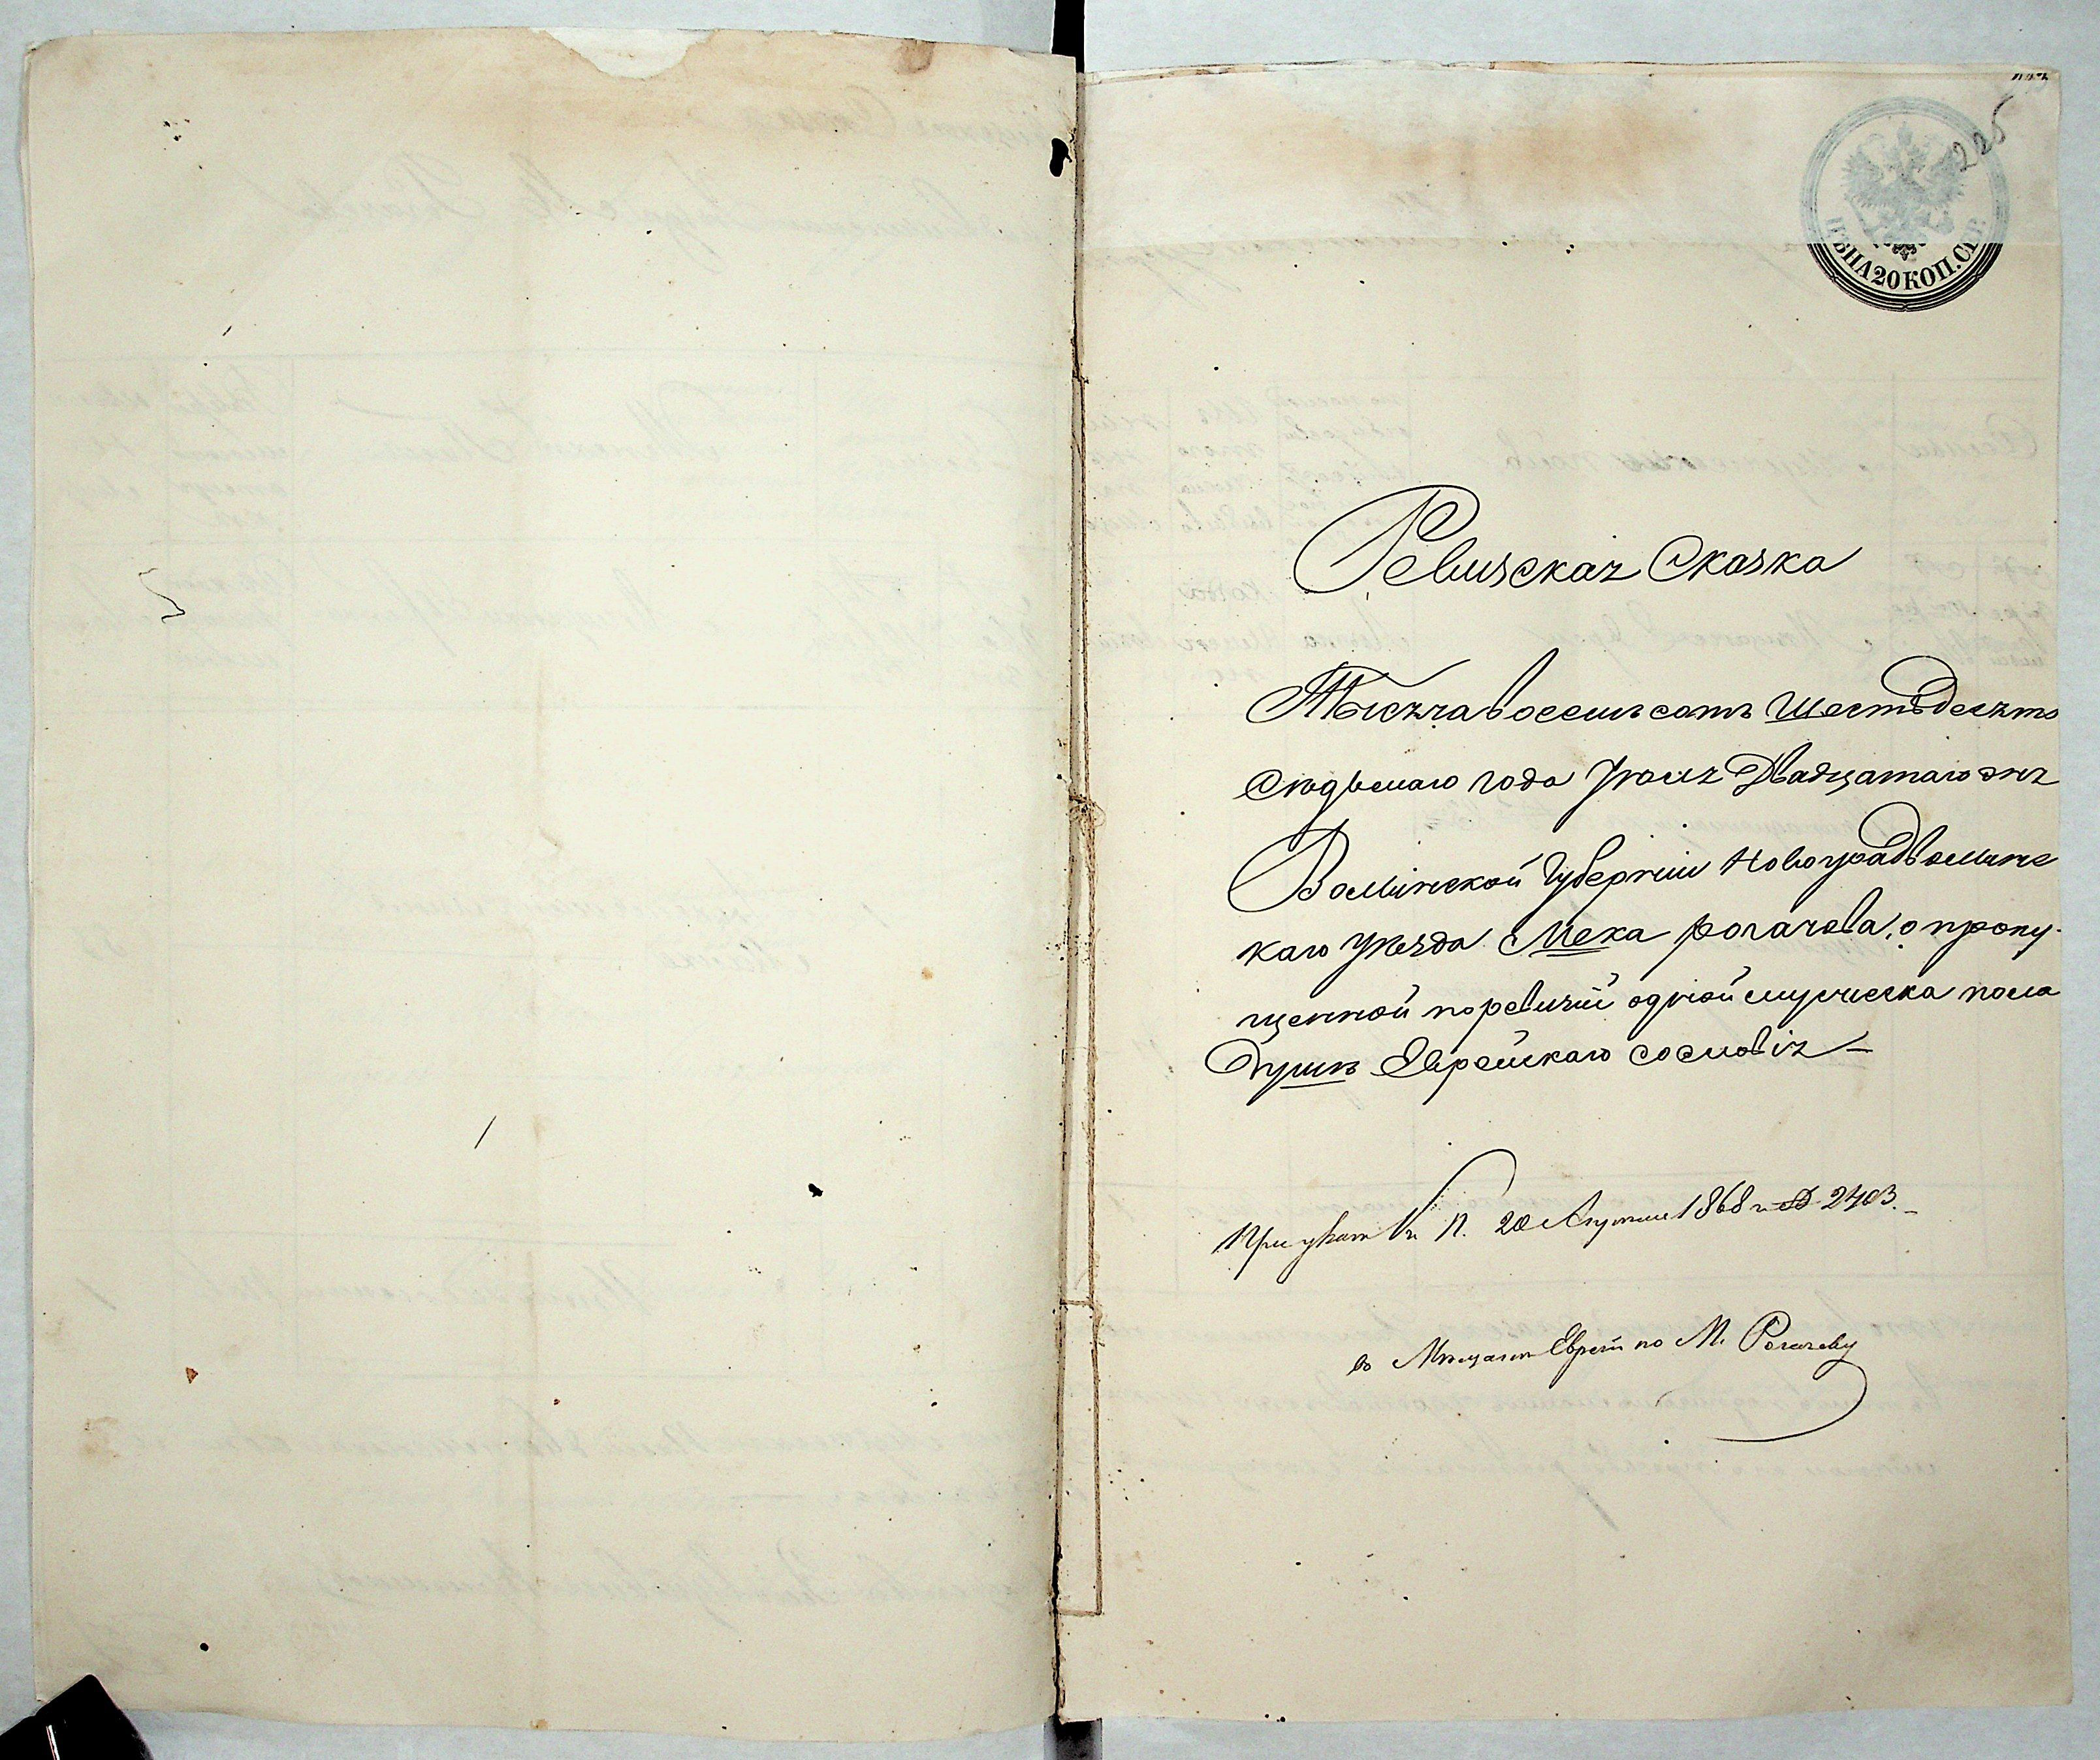 225
ЦѢНА 20 КОП. СЕР.
Ревизская Сказка
Тысяча восемьсотъ шестьдесятъ
Сѣдьмаго года Іюля Двадцатаго дня
Волынской Губерніи Новоградволынс
каго уѣзда Мека рогачева, о пропу-
щенной по ревизіи одной мужеска пола
душѣ Еврейскаго сословія —
При указѣ К. П. 20 1868 г. № 2403.
въ Мѣщане Евреи по М. Рогачеву